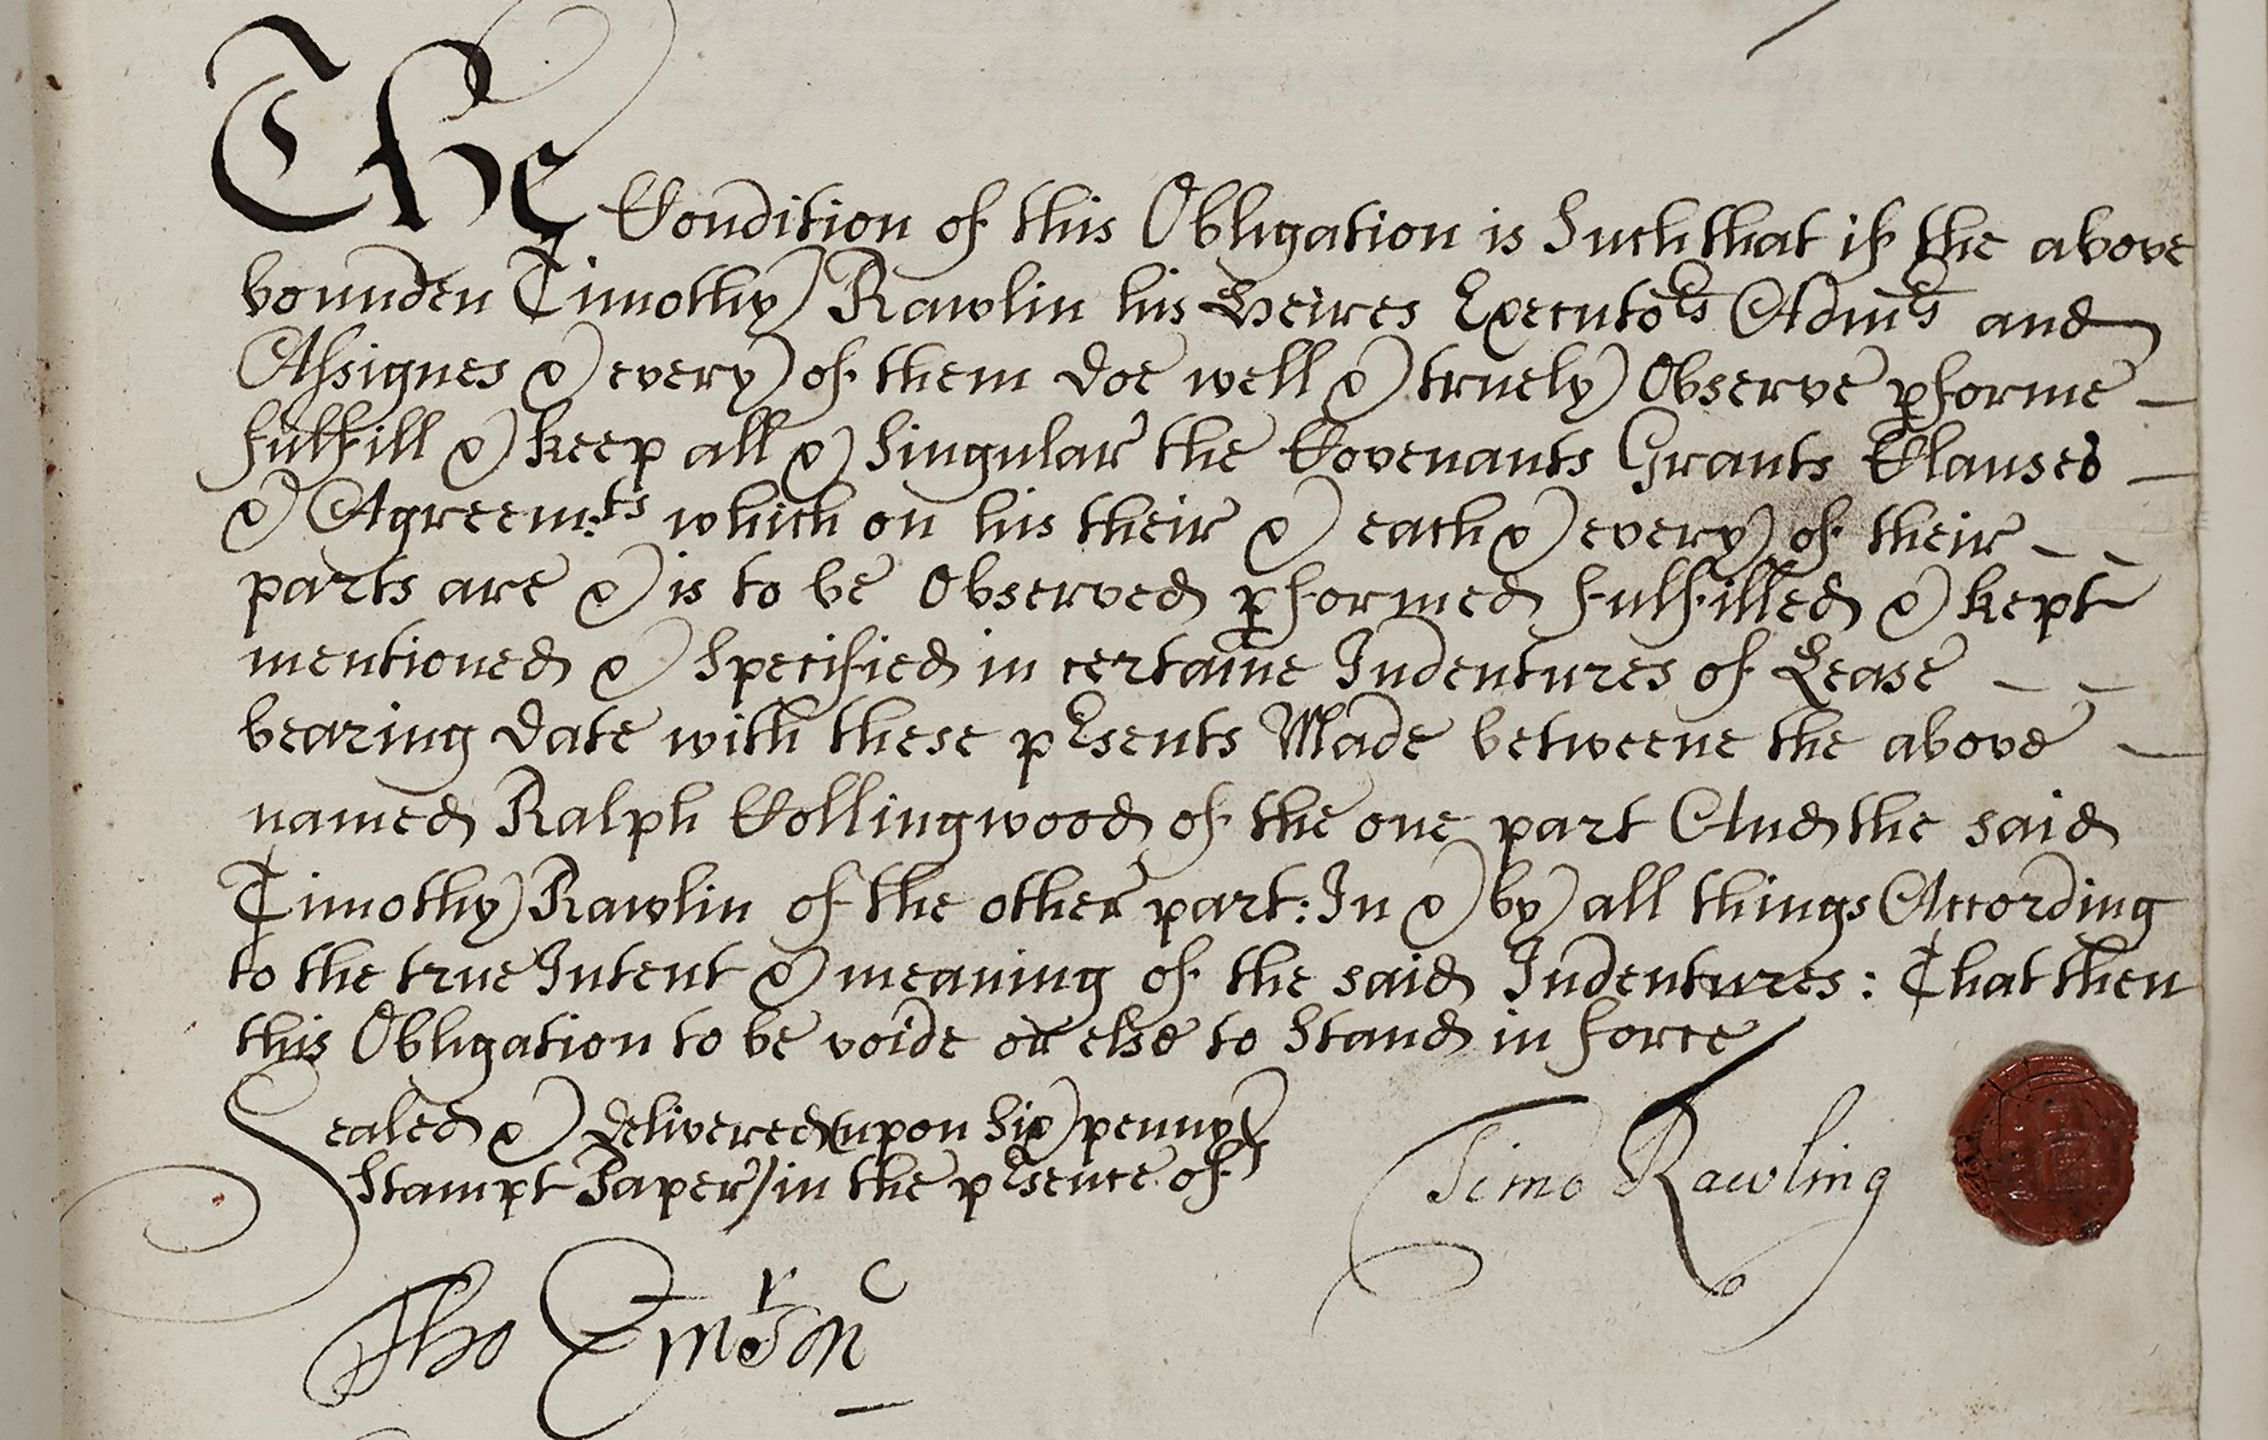 The Condition of this Obligation is Such that if the above
bounden Timothy Rawlin his Heires Executors Admrs and
Assignes & every of them doe well & truely Observe pforme
fulfill & keep all & Singular the Covenants Grants Clauses
& Agreemts which on his their & each & every of their
parts are & is to be Observed pformed fulfilled & kept
mentioned & Specified in certaine Indentures of Lease
bearing date with these prsents Made betweene the above
named Ralph Collingwood of the one part And the said
Timothy Rawlin of the other part: In & by all things According
to the true Intent & meaning of the said Indentures: That then
this Obligation to be voide or else to Stand in force
Sealed & delivered (upon Six penny
Stampt Paper) in the prsence of
Timo Rawling
Tho